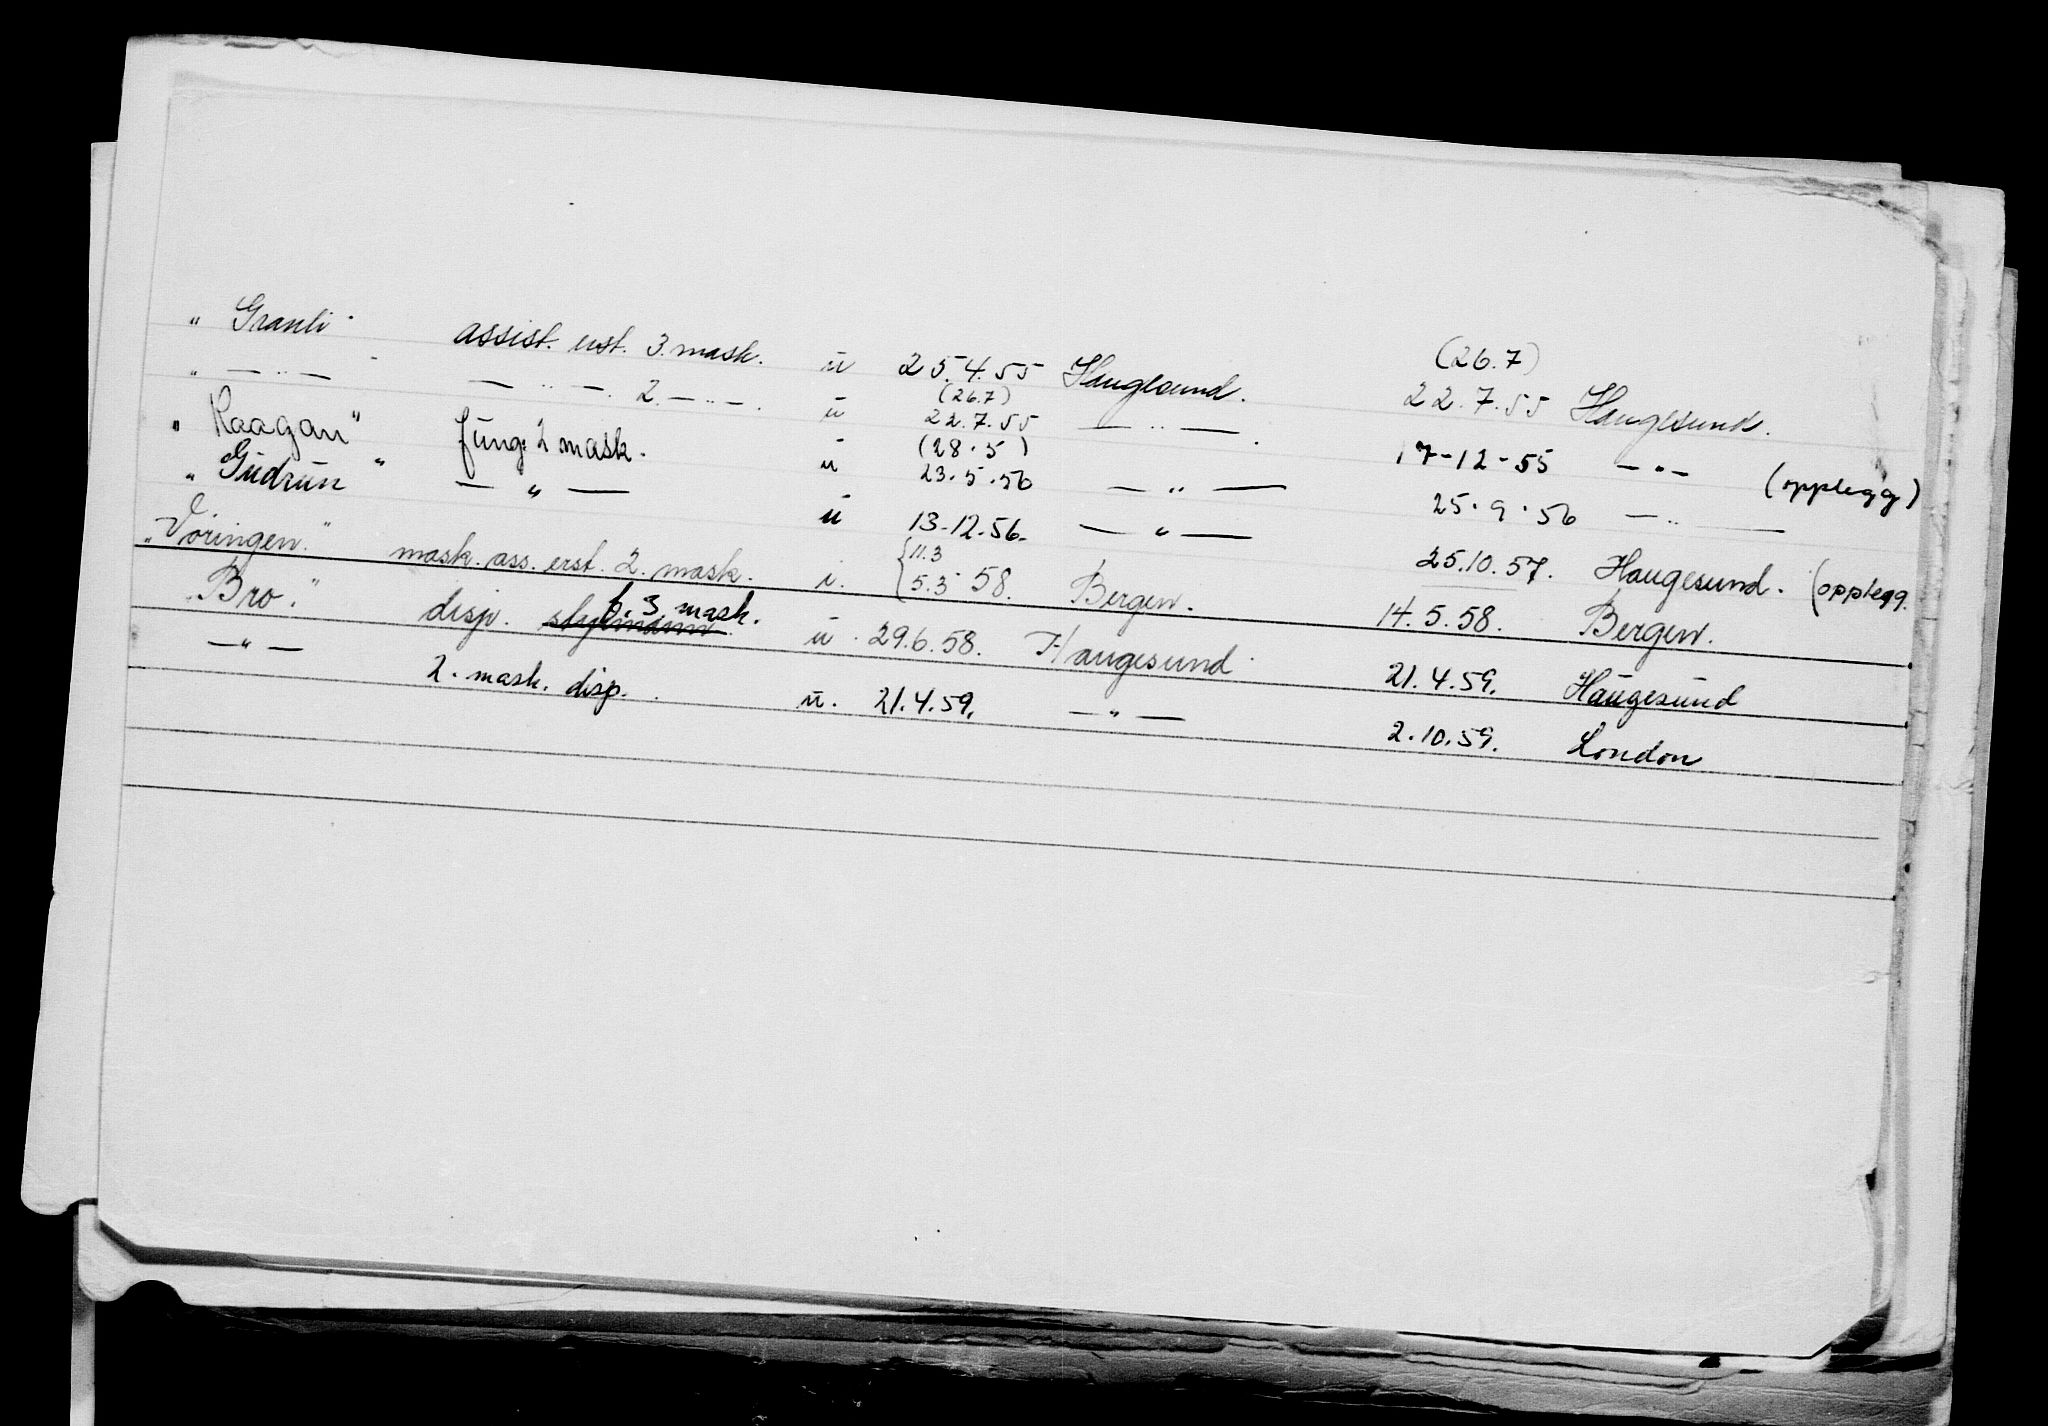 " Granli " assist. erst. 3. mask. u 25.4.55 Haugesund. (26.7) 22.7.55 Haugesund.
" — " — — " — 2. — " — . u (26.7) 22.7.55 — " — . 17-12-55 — " — (opplegg)
" Raagan " fung. 2 mask. u (28.5) 23.5.56 — " — 25.9.56 — " —
" Gudrun " — " — u 13-12.56. — " — 25.10.57. Haugesund. (opplegg.
" Vöringen." mask. ass. erst. 2. mask. u. {11.3 5.3 58. Bergen. 14.5.58. Bergen.
" Bro." disp. f. 3 mask. u. 29.6.58. Haugesund 21.4.59. Haugesund
— " — 2. mask. disp. u. 21.4.59. — " — 2.10.59. London